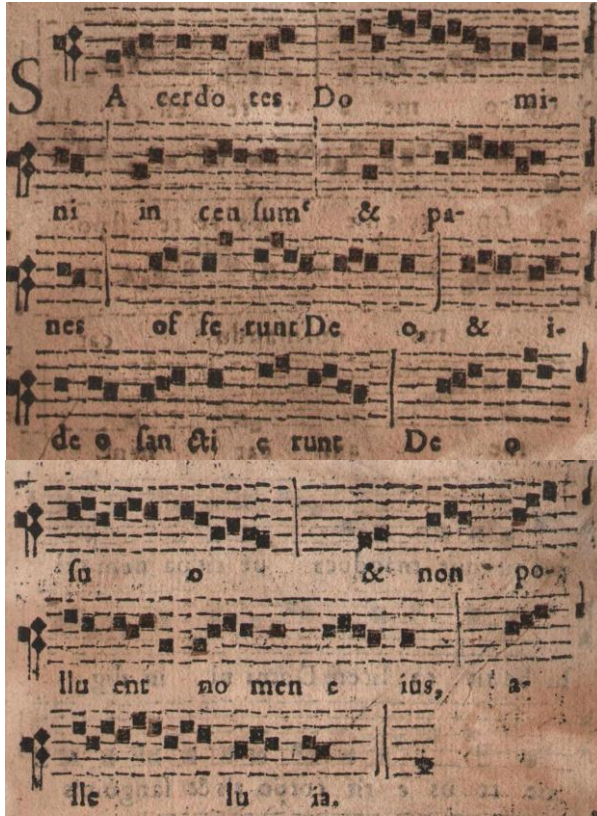 SA cerdo tes Do mi-
ni in cen sum & pa-
nes of fe runt De o, & i-
de o san cti e runt De o
su o & non po-
llu ent no men e ius, a-
lle lu ia.